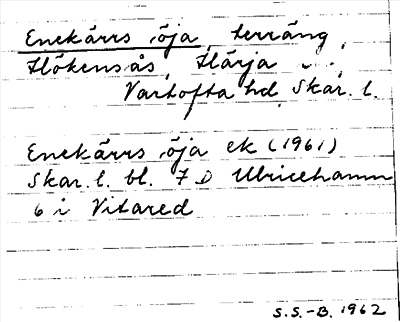 Enekärrs öja, terräng,
Hökensås, Härja
Vartofta hd, Skar. l.
Enekärrs öja ek (1961)
Skar. l. bl. 7 D Ulricehamn
6 i Vitared
S.S.-B. 1962